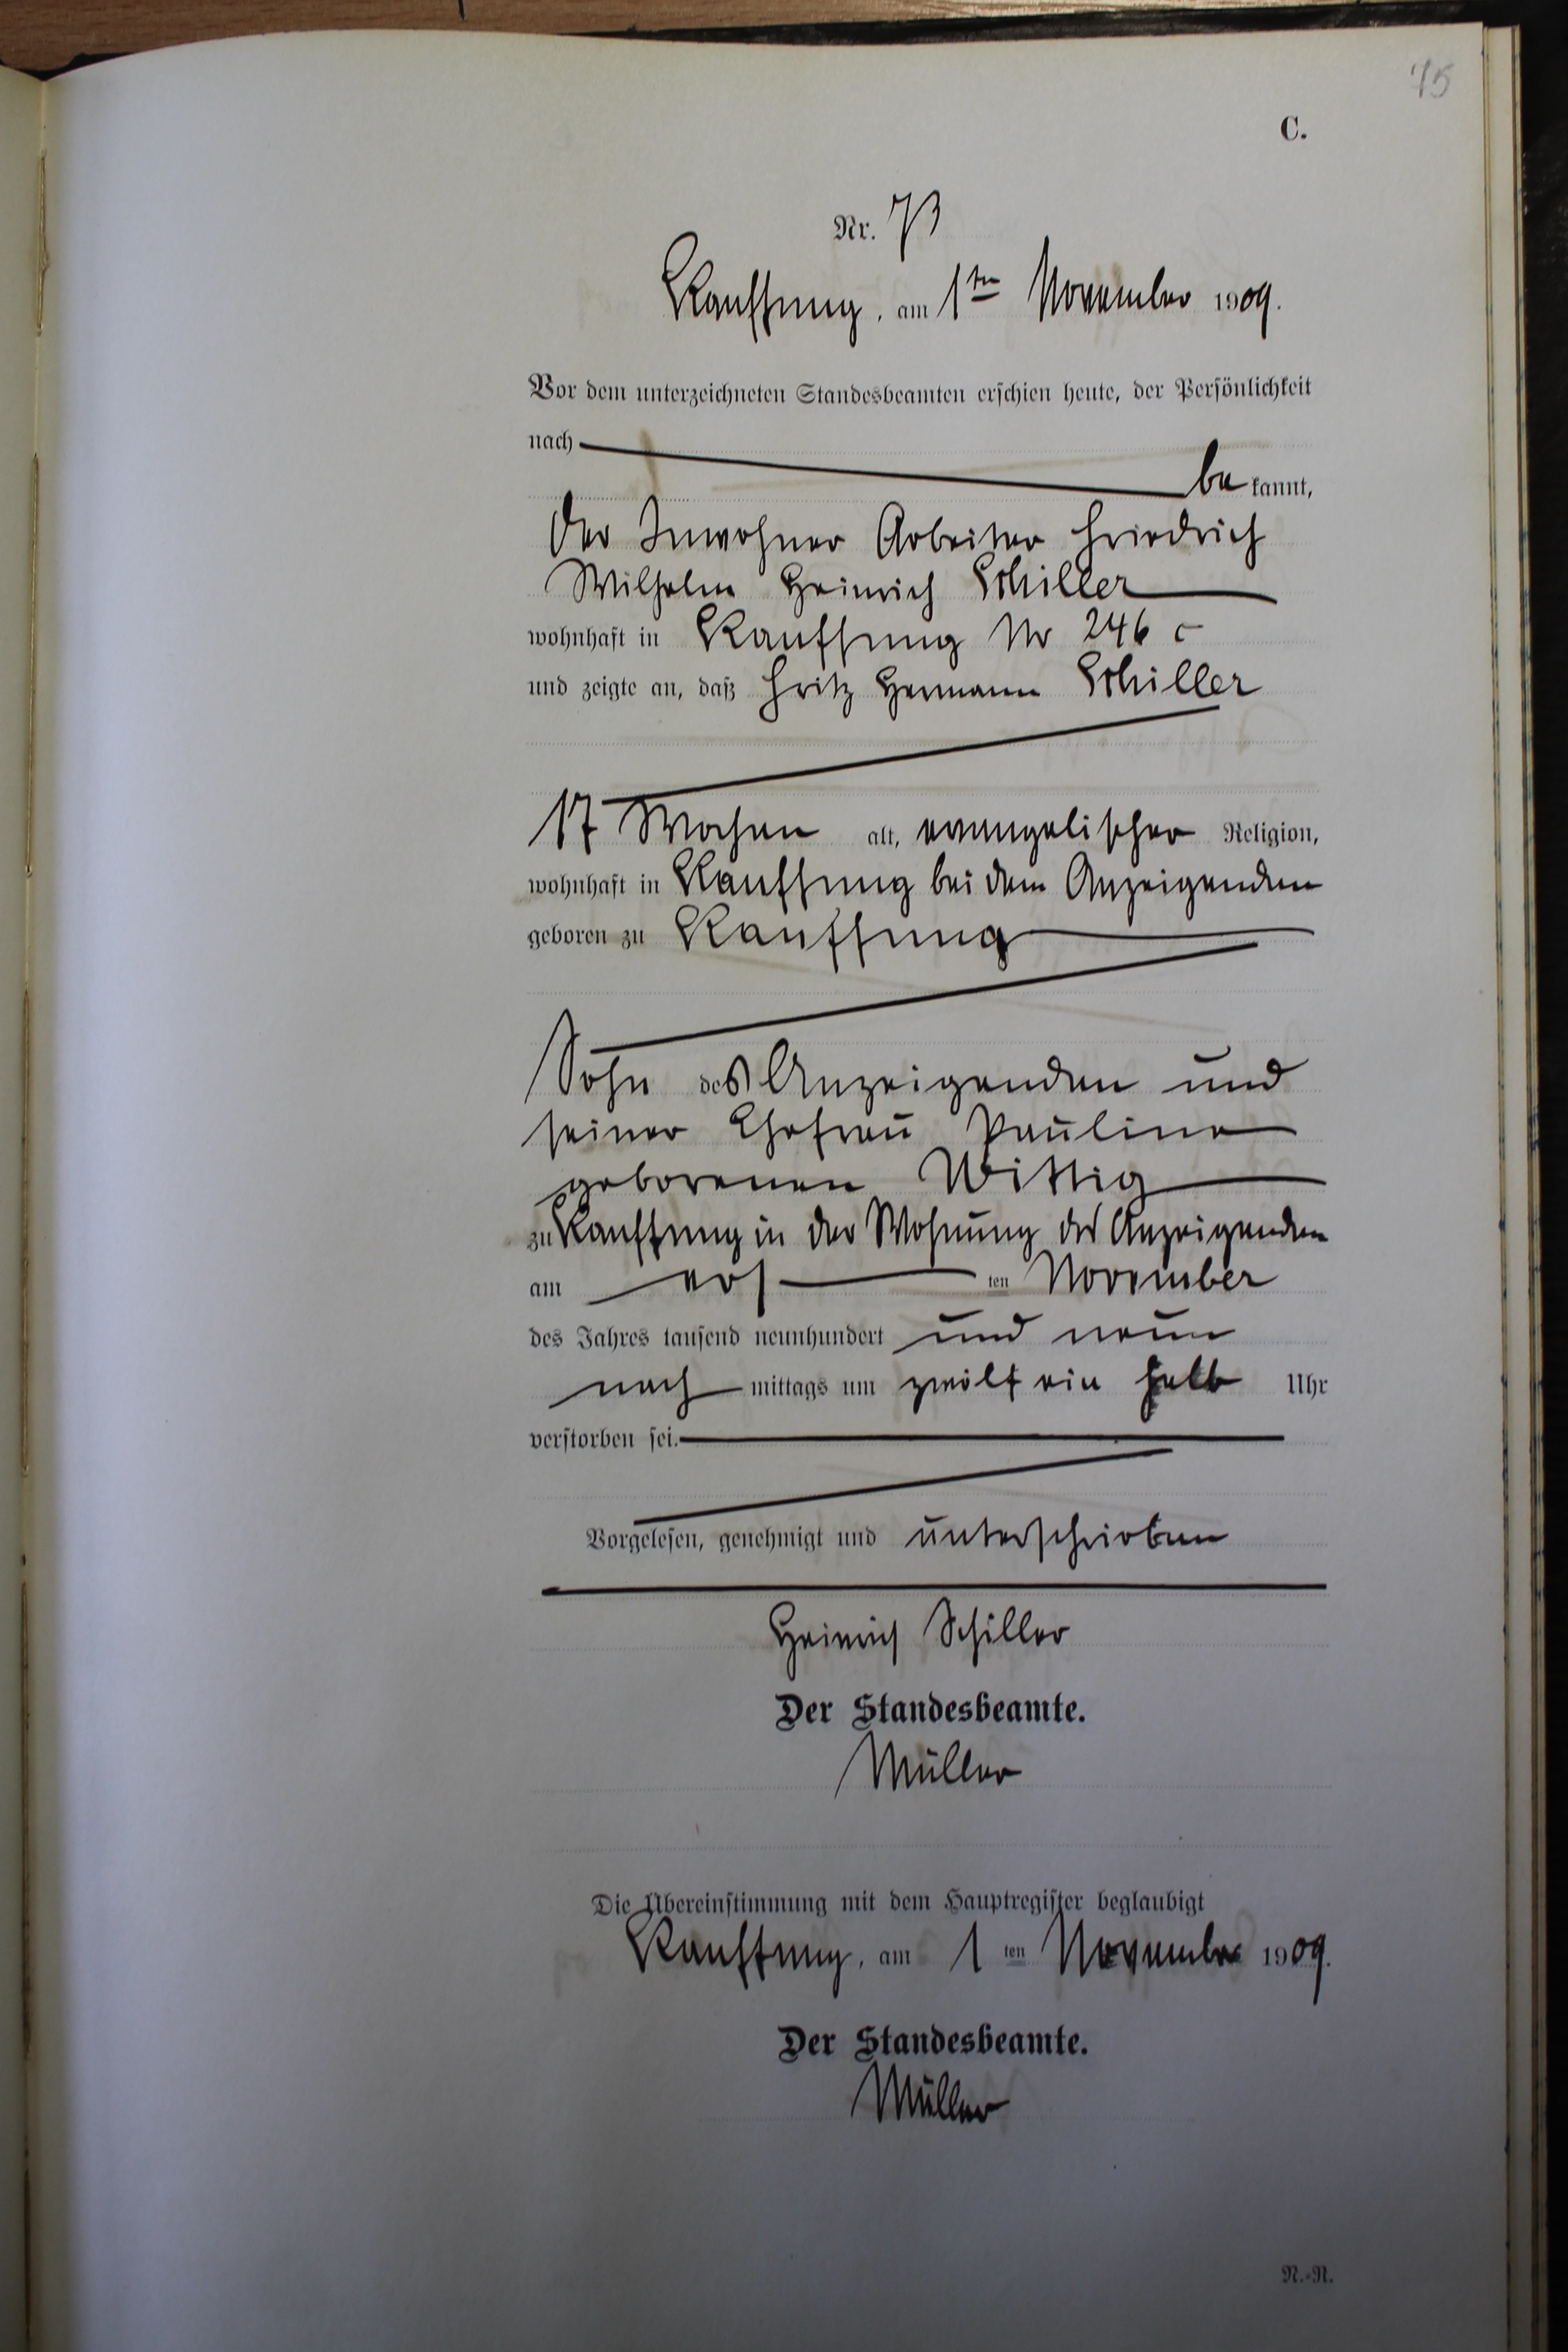 75
C.
Nr. 73
Kauffung, am 1ten November 1909.
Vor dem unterzeichneten Standesbeamten erschien heute, der Persönlichkeit
nach
be kannt,
der Inwohner Arbeiter Friedrich
Wilhelm Heinrich Schiller
wohnhaft in Kauffung Nr 246 c
und zeigte an, daß Fritz Hermann Schiller
17 Wochen alt, evangelischer Religion,
wohnhaft in Kauffung bei dem Anzeigenden
geboren zu Kauffung
Sohn des Anzeigenden und
seiner Ehefrau Pauline
geborenen Wittig
zu Kauffung in der Wohnung des Anzeigenden
am ers ten November
des Jahres tausend neunhundert und neun
nach mittags um zwölf ein halb Uhr
verstorben sei.
Vorgelesen, genehmigt und unterschrieben
Heinrich Schiller
Der Standesbeamte.
Müller
Die Übereinstimmung mit dem Hauptregister beglaubigt
Kauffung, am 1 ten November 1909.
Der Standesbeamte.
Müller
N.-N.